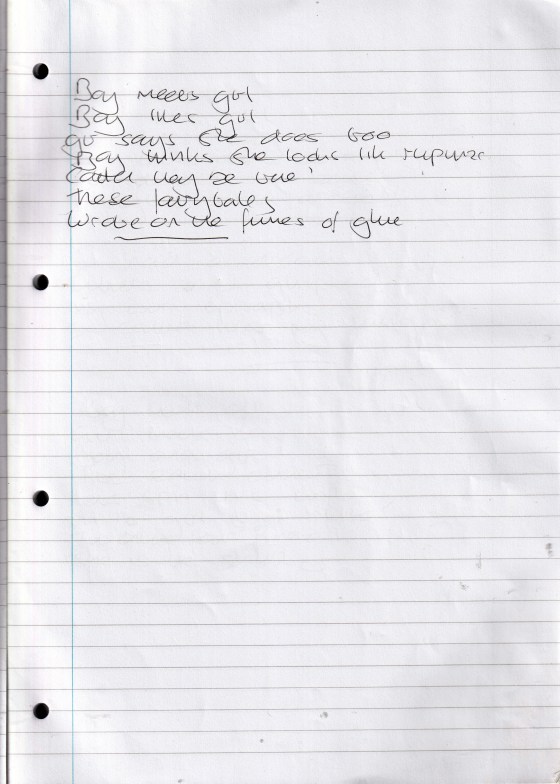 Boy meets girl
Boy likes girl
girl says she does too
Boy thinks she looks like
be true
these fairytales
wrote on the fumes of glue